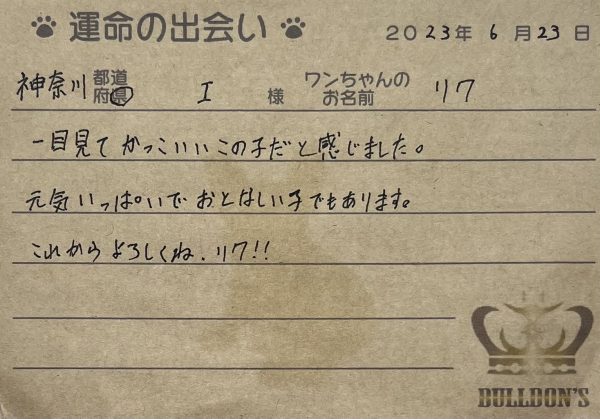 運命の出会い
2023年 6月23日
神奈川 都道府県 I 様 ワンちゃんのお名前 リク
一目見て かっこいい この子だ と感じました。
元気いっぱいで おとなしい子でもあります。
これから よろしくね、リク!!
BULLDON'S